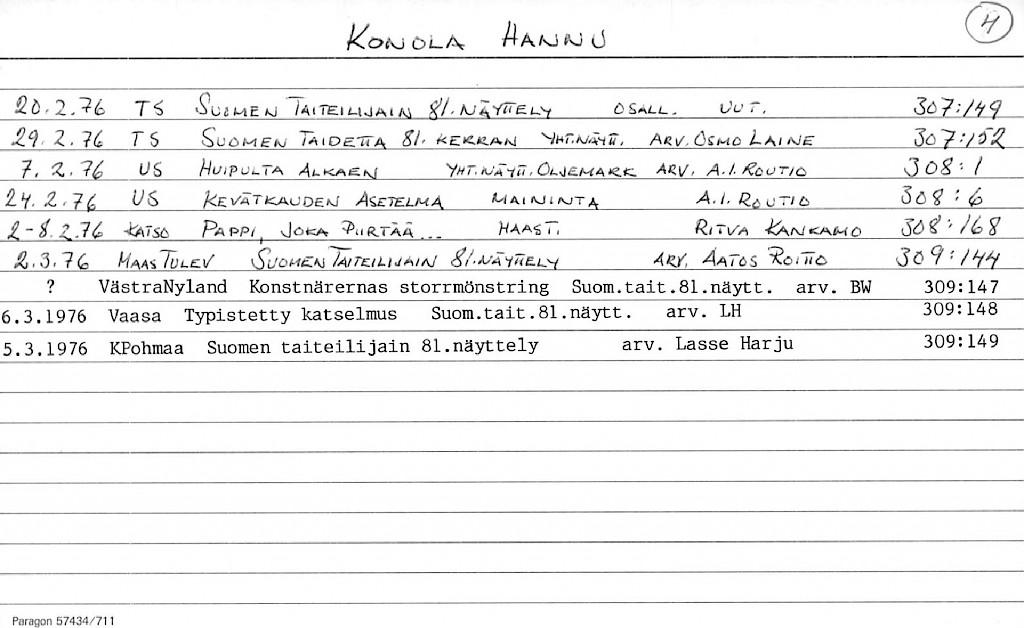 KONOLA HANNU
4
20.2.76 TS SUOMEN TAITEILIJAIN 81.NÄYTTELY OSALL. UUT. 307:149
29.2.76 TS SUOMEN TAIDETTA 81. KERRAN YHT.NÄYTT. ARV. OSMO LAINE 307:152
7.2.76 US HUIPULTA ALKAEN YHT.NÄYTT. OLJEMARK ARV. A.I. ROUTIO 308:1
24.2.76 US KEVÄTKAUDEN ASETELMA MAININTA A.I. ROUTIO 308:6
2-8.2.76 KATSO PAPPI, JOKA PIIRTÄÄ... HAAST. RITVA KANKAMO 308:168
2.3.76 MAASTULEV SUOMEN TAITEILIJAIN 81.NÄYTTELY ARV. AATOS ROITTO 309:144
? VästraNyland Konstnärernas storrmönstring Suom.tait.81.näytt. arv. BW 309:147
6.3.1976 Vaasa Typistetty katselmus Suom.tait.81.näytt. arv. LH 309:148
5.3.1976 KPohmaa Suomen taiteilijain 81.näyttely arv. Lasse Harju 309:149
Paragon 57434/711